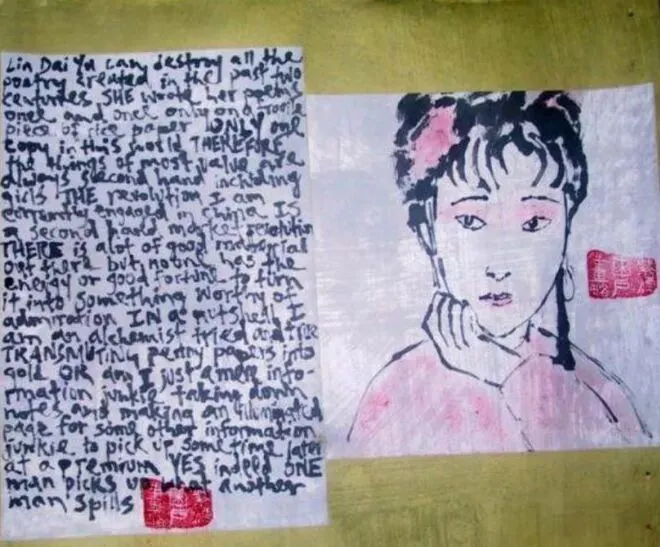 Lin Dai Yu can destroy all the
poetry created in the past two
centuries SHE wrote her poems
once and once only on a
piece of rice paper ONLY one
copy in this world THEREFORE
the things of most value are
always second hand including
girls THE revolution I am
currently engaged in china IS
a second hand market revolution
THERE is alot of good material
out there but no one has the
energy or good fortune to turn
it into something worthy of
admiration IN a nutshell I
am an alchemist tried and TRUE
TRANSMUTING penny papers into
gold OR am I just a mere info-
rmation junkie taking down
notes and making an illuminated
page for some other information
junkie to pick up sometime later
at a premium YES indeed ONE
man picks up what another
man spills